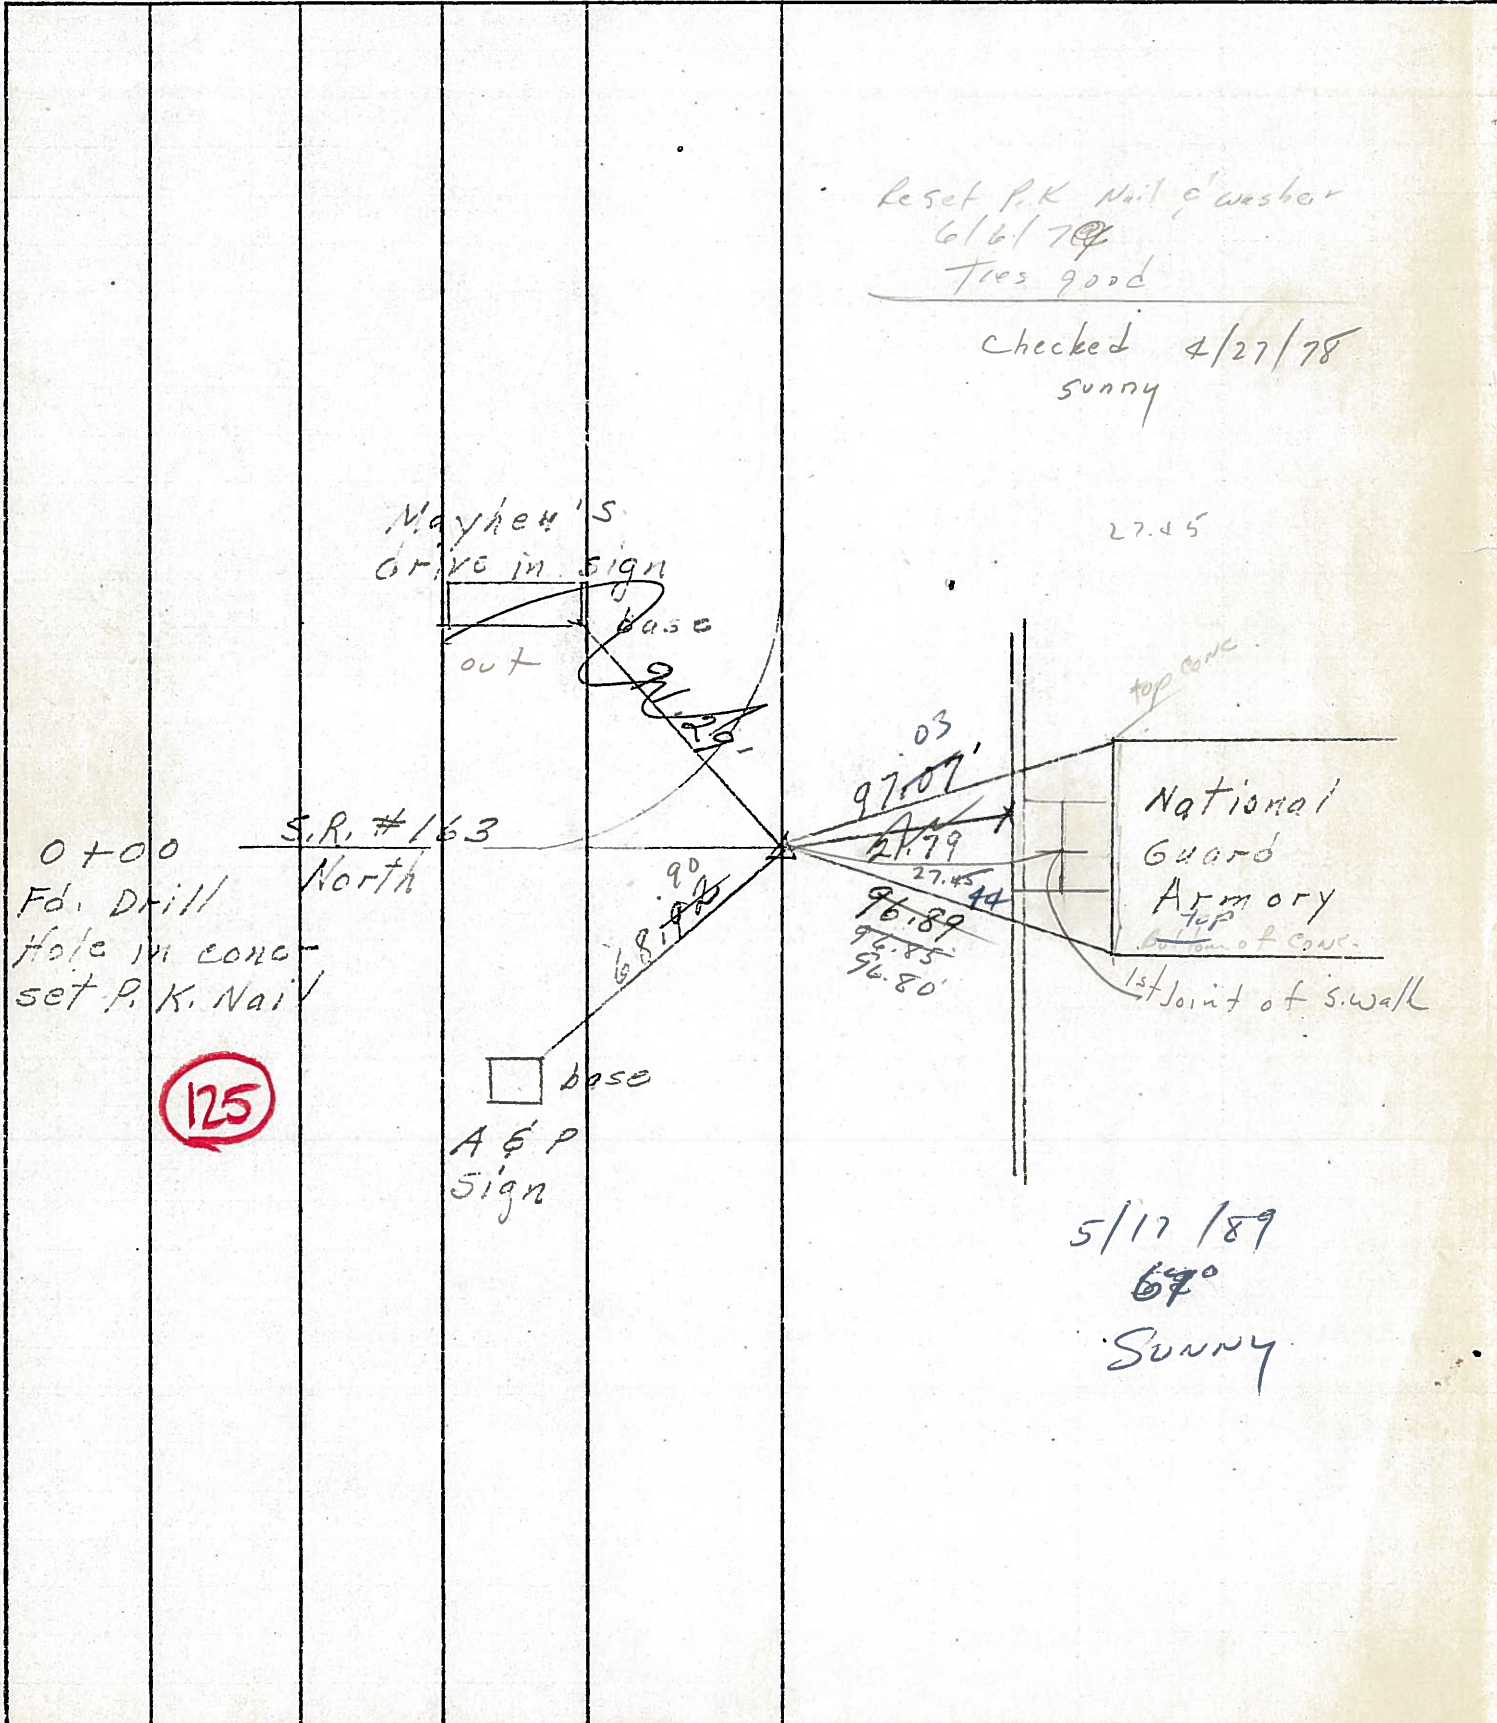 Reset P.K Nail & washer
6/6/79
Ties good
Checked 4/27/78
sunny
27.45
Mayhew's
drive in sign
base
out
top conc.
.03
97.07'
21.79
27.45
44
96.89
96.85
96.80'
National
Guard
Armory
top
bottom of conc.
1st Joint of S.walk
S.R. #163
North
0+00
Fd. Drill
Hole in conc-
set P.K. Nail
.90
68.92
125
base
A & P
Sign
5/17/89
Sunny